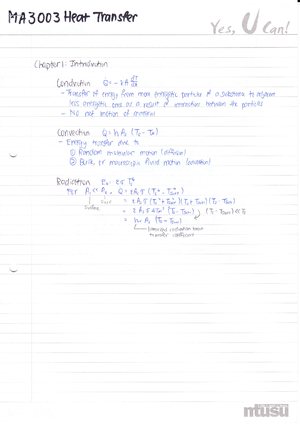 MA3003 Heat Transfer
Yes, U Can!
Chapter 1: Introduction
Conduction Q = -kA dT/dx
- Transfer of energy from more energetic particles of a substance to adjacent
less energetic ones as a result of interactions between the particles
- No net motion of material
Convection Q = h As (Ts - T∞)
- Energy transfer due to
① Random molecular motion (diffusion)
② Bulk or macroscopic fluid motion (advection)
Radiation
For
surface
radiation heat
transfer coefficient
ntusu